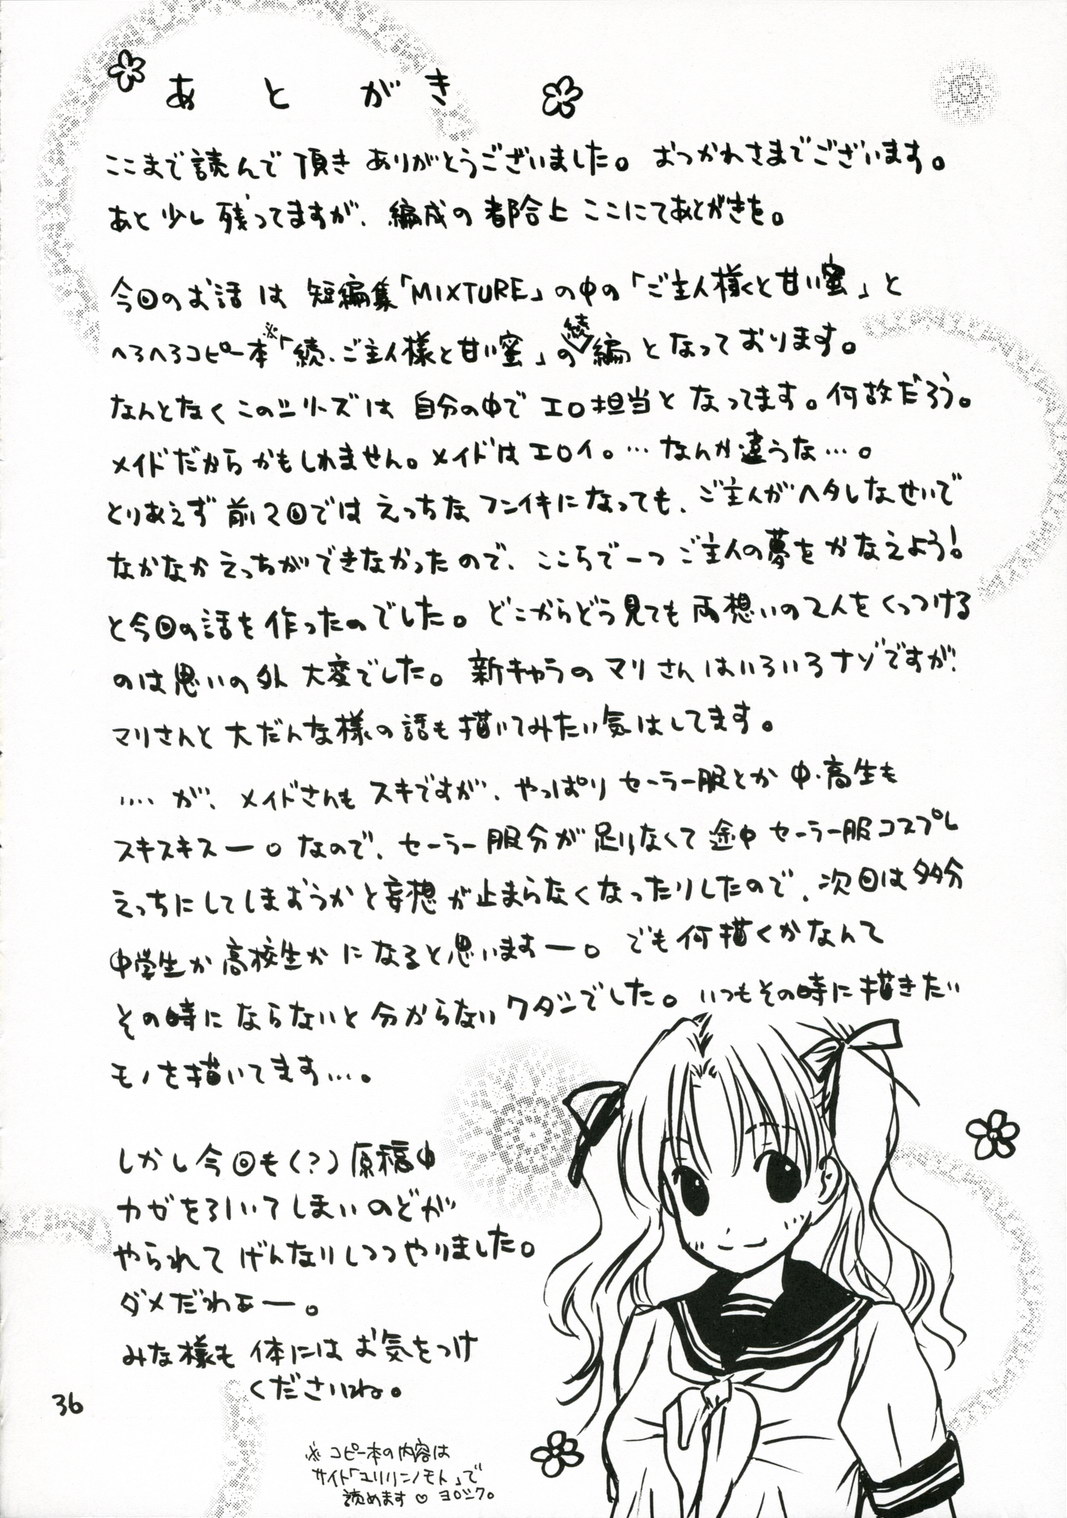 あとがき
ここまで読んで頂きありがとうございました。おつかれさまでございます。
あと少し残ってますが、編成の都合上ここにてあとがきを。
今回のお話は短編集「MIXTURE」の中の「ご主人様と甘い蜜」と
へろへろコピー本※「続・ご主人様と甘い蜜」の続編となっております。
なんとなくこのシリーズは自分の中でエロ担当となってます。何故だろう。
メイドだからかもしれません。メイドはエロイ。…なんか違うな…。
とりあえず前2回ではえっちなフンイキになっても、ご主人がヘタレなせいで
なかなかえっちができなかったので、ここらで一つご主人の夢をかなえよう!
と今回の話を作ったのでした。どこからどう見ても両想いの2人をくっつける
のは思いの外大変でした。新キャラのマリさんはいろいろナゾですが、
マリさんと大だんな様の話も描いてみたい気はしてます。
‥‥が、メイドさんもスキですが、やっぱりセーラー服とか中・高生も
スキスキスー。なので、セーラー服分が足りなくて途中セーラー服コスプレ
えっちにしてしまおうかと妄想が止まらなくなったりしたので、次回は多分
中学生か高校生かになると思いますー。でも何描くかなんて
その時にならないと分からないワタシでした。いつもその時に描きたい
モノを描いてます…。
しかし今回も(?)原稿中
カゼを引いてしまいのどが
やられてげんなりしつつやりました。
ダメだわぁー。
みな様も体にはお気をつけ
くださいね。
36
※コピー本の内容は
サイト「ユリリンノモト」で
読めます♡ヨロシク。